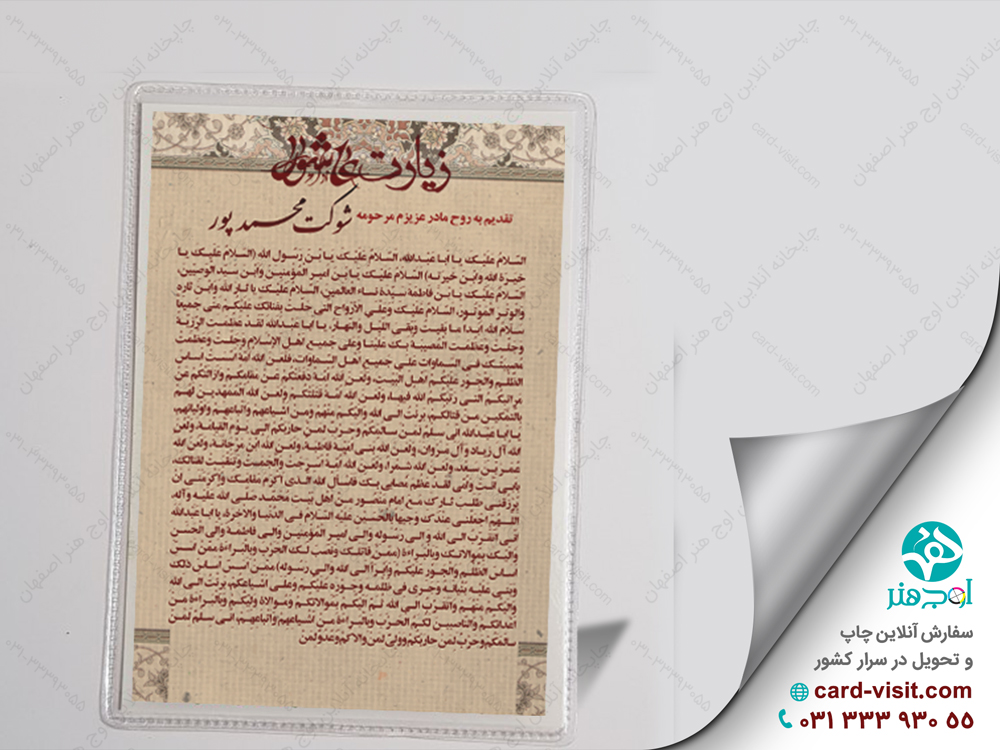 زیارت عاشورا
تقدیم به روح مادر عزیزم مرحومه شوکت محمدپور
السّلامُ عَلیک یا ابا عبدالله، السّلامُ عَلَیْکَ یَا بْنَ رَسُولِ الله (السّلامُ عَلَیکَ یا
خیَرَة الله وابْنَ خیَرَتِه) السّلامُ عَلیْکَ یَا بْنَ امیرِ الْمُؤمِنینَ وَابْنَ سَیّدِ الْوَصِیّین،
السّلامُ عَلیْکَ یا بنَ فاطِمَة سَیّدَة نساء العالمین، السّلامُ عَلیْکَ یا ثارَ الله وَابْنَ ثاره
والوترَ المَوتُور، السّلامُ علیک وعلی الأرواح التی حلّت بفنائک علیکم منّی جمیعا
سلام الله ابدا ما بقیت وبقی اللیل والنهار، یا ابا عبدالله لقد عظمت الرّزیّة
وجلّت وعظمت المصیبة بک علینا وعلی جمیع اهل الإسلام وجلّت وعظمت
مصیبتک فی السّماوات علی جمیع اهل السّماوات، فلعن الله امة اسست اساس
الظلم والجور علیکم اهل البیت، ولعن الله امة دفعتکم عن مقامکم وازالتکم عن
مراتبکم التی رتبکم الله فیها، ولعن الله امة قتلتکم ولعن الله الممهدین لهم
بالتمکین من قتالکم، برئت الی الله والیکم منهم ومن اشیاعهم واتباعهم واولیائهم،
یا ابا عبدالله انی سلم لمن سالمکم وحرب لمن حاربکم الی یوم القیامة، ولعن
الله آل زیاد وآل مروان، ولعن الله بنی امیة قاطبة، ولعن الله ابن مرجانة، ولعن الله
عمر بن سعد، ولعن الله شمرا، ولعن الله امة اسرجت والجمت وتنقبت لقتالک،
بابی انت وامّی لقد عظم مصابی بک فاسأل الله الذی اکرم مقامک واکرمنی ان
یرزقنی طلب ثارک مع امام منصور من اهل بیت محمد صلی الله علیه وآله،
اللهم اجعلنی عندک وجیها بالحسین علیه السلام فی الدنیا والاخرة، یا ابا عبدالله
انی اتقرب الی الله و الی رسوله والی امیر المؤمنین والی فاطمة والی الحسن
والیک بموالاتک وبالبراءة (ممن قاتلک ونصب لک الحرب وبالبراءة ممن اسس
اساس الظلم والجور علیکم وابرأ الی الله والی رسوله) ممن اسس اساس ذلک
وبنی علیه بنیانه وجری فی ظلمه وجوره علیکم وعلی اشیاعکم، برئت الی الله
والیکم منهم واتقرب الی الله ثم الیکم بموالاتکم وموالاة ولیکم وبالبراءة من
اعدائکم والناصبین لکم الحرب وبالبراءة من اشیاعهم واتباعهم، انی سلم لمن
سالمکم وحرب لمن حاربکم وولیّ لمن والاکم وعدوّ لمن
اوج هنر
سفارش آنلاین چاپ
و تحویل در سرار کشور
card-visit.com
۰۳۱ ۳۳۳ ۹۳۰ ۵۵
چاپخانه آنلاین اوج هنر اصفهان
card-visit.com
۰۳۱-۳۳۳۹۳۰۵۵